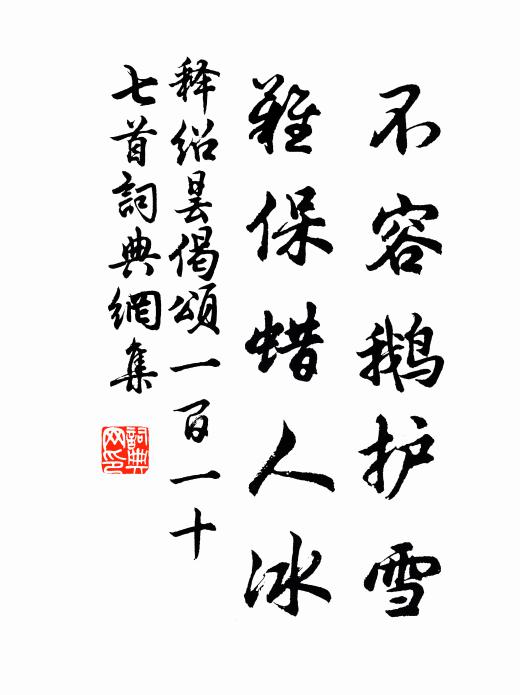 不容鹅护雪
難保蜡人冰
释绍昙偈頌一百一十
七首詞典網集
詞典
网印